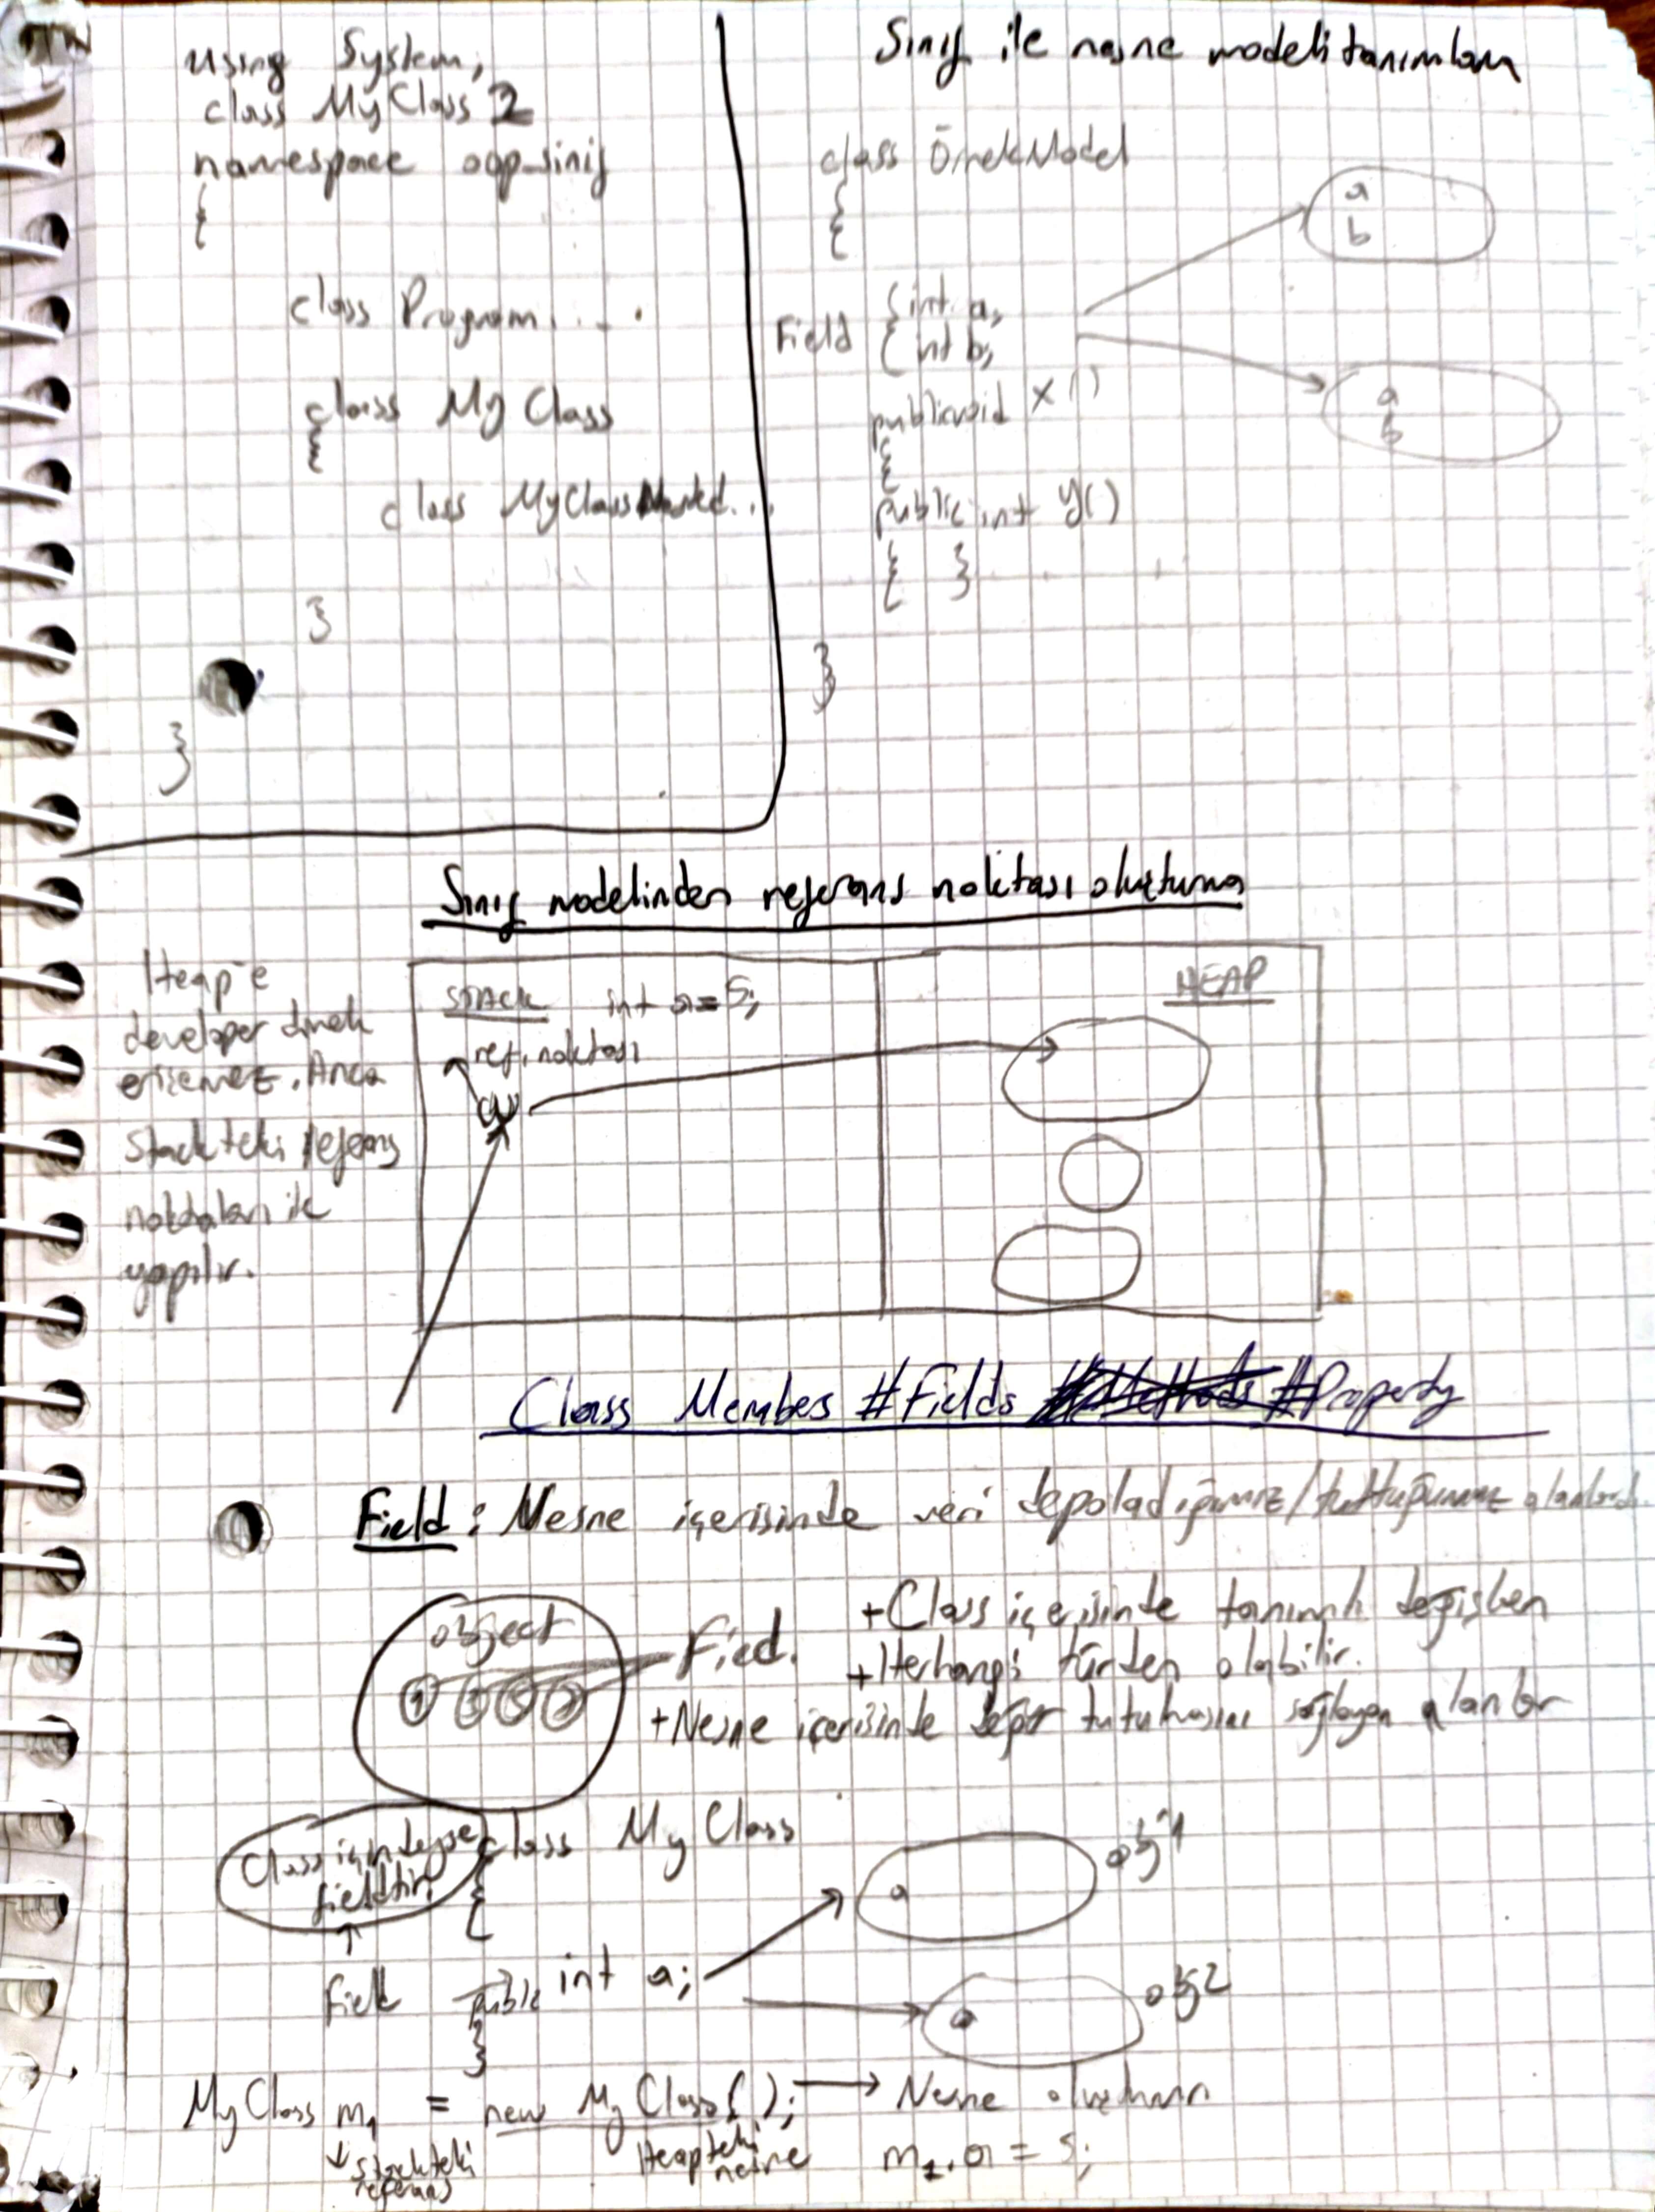 using System;
class MyClass2
namespace oop_sinif
{
class Program....
class MyClass
{
class MyClassNested...
}
}
Sınıf ile nesne modeli tanımlama
class ÖrnekModel
{
Field { int a;
{ int b;
public void X()
{
public int Y()
{ }
}
a
b
a
b
Sınıf modelinden referans noktası oluşturma
Heap'e
developer direk
erişemez. Anca
Stackteki referans
noktaları ile
yapılır.
STACK int a=5;
ref. noktası
HEAP
Class Membes #Fields #Methods #Property
Field: Nesne içerisinde veri depoladığımız/tuttuğumuz alanlardı
object
Fied.
+Class içerisinde tanımlı değişken
+Herhangi türden olabilir.
+Nesne içerisinde değer tutulmasını sağlayan alanlar
Class içindeyse
fielddir.
class MyClass
{
Field public int a;
}
a obj1
a obj2
MyClass m1 = new MyClass(); → Nesne oluşturma
↓ stackteki
referans
Heapteki
nesne
m1.a = 5;